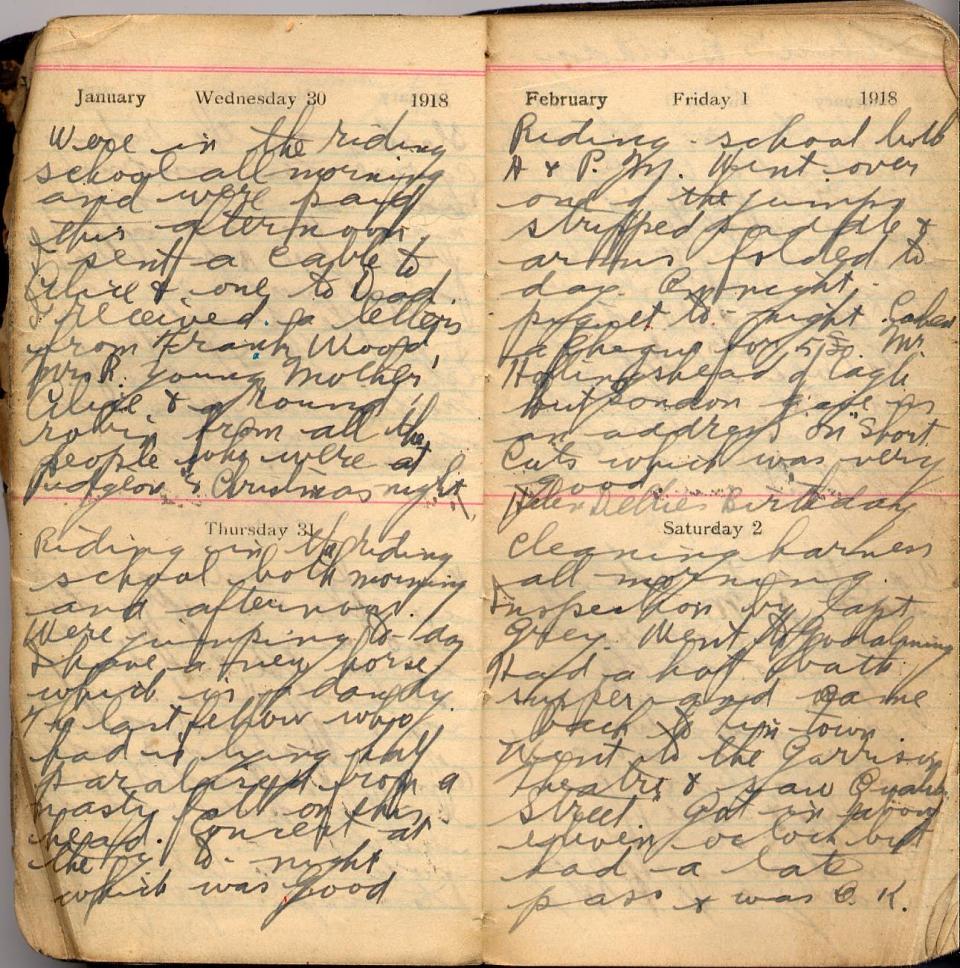 January Wednesday 30 1918
Were in the riding
school all morning
and were paid
this afternoon.
I sent a cable to
Alice & one to Dad.
I received a letters
from Frank Wood,
Mrs R. Young Mother,
Alice, & a round
robin from all the
people who were at
Christmas night
Thursday 31
Riding in the riding
school both morning
and afternoon.
Were jumping to-day
I have a new horse
which is a dandy.
The last fellow who
had is lying half
paralized from a
nasty fall on his
head. Concert at
the to-night
which was good
February Friday 1 1918
Riding school both
A & P.M. Went over
one of the jumps
stripped saddle &
arms folded to
day. On night
piquet to-night.
a cheque for Mr.
Hollingshead of Eagle
but London gave us
an address on "Short
Cuts which was very
good
Helen Birthday
Saturday 2
Cleaning harness
all morning.
Inspection by Capt
Grey. Went to Godalming
Had a hot bath
supper and came
back to town
Went to the Garrison
Theatre & saw
Street. Got in
eleven oclock but
had a late
pass & was O.K.